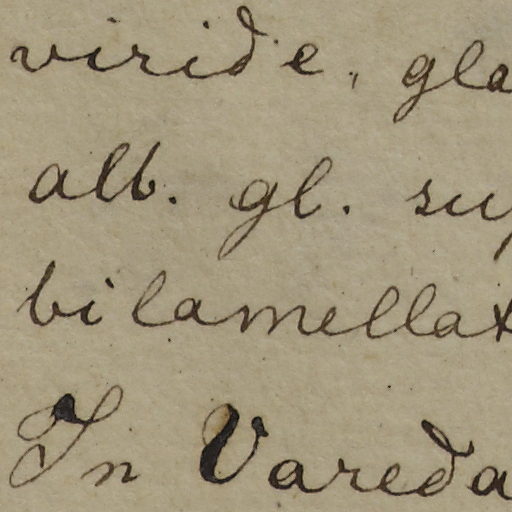 viride, gla
alb. gl. sup
bilamellat
In Vareda